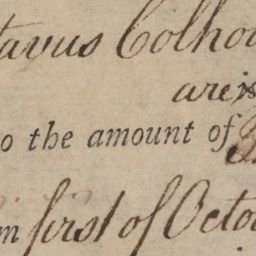 tavus Colho
are is
o the amount of
m first of Octo